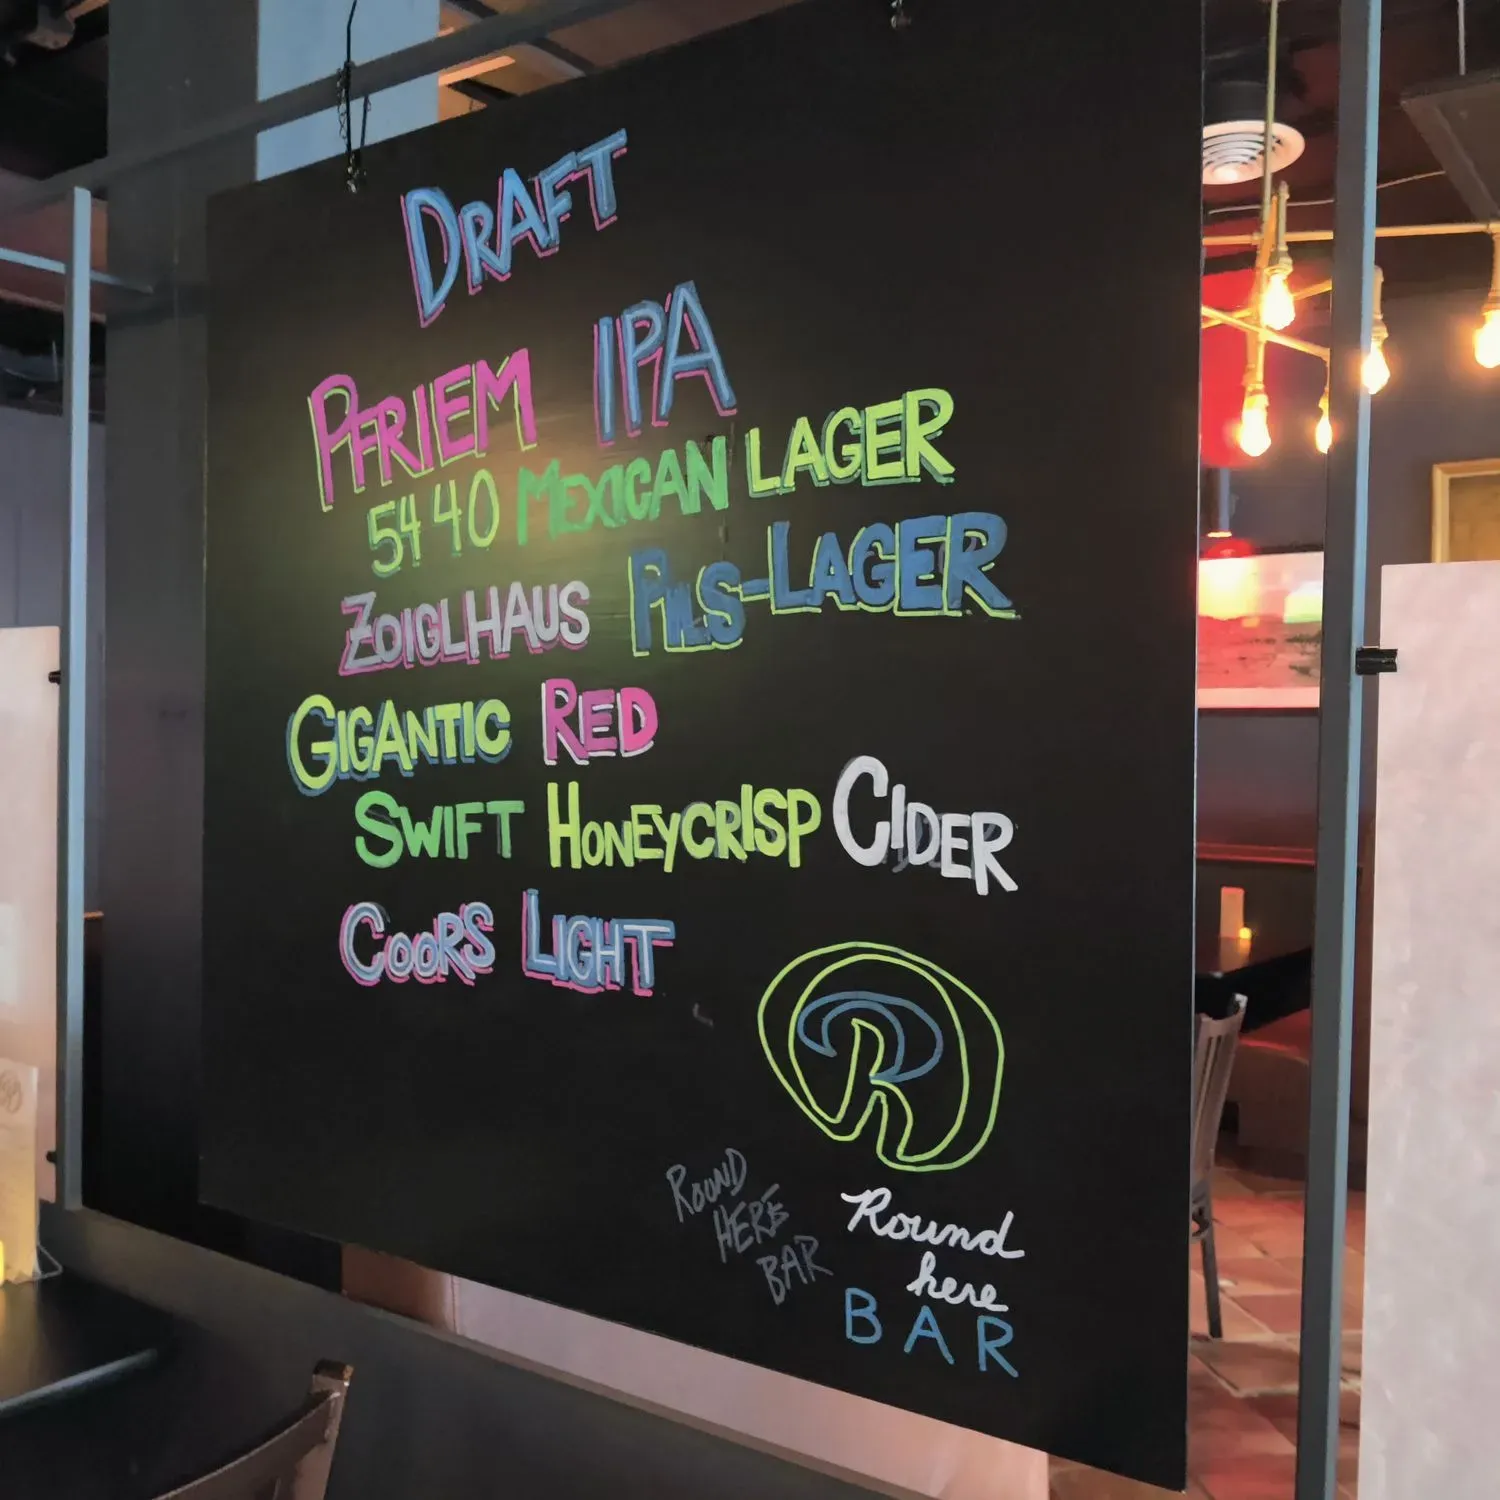 DRAFT
PFRIEM IPA
5440 MEXICAN LAGER
ZOIGLHAUS PILS-LAGER
GIGANTIC RED
SWIFT HONEYCRISP CIDER
COORS LIGHT
R
ROUND
HERE
BAR
Round
here
BAR